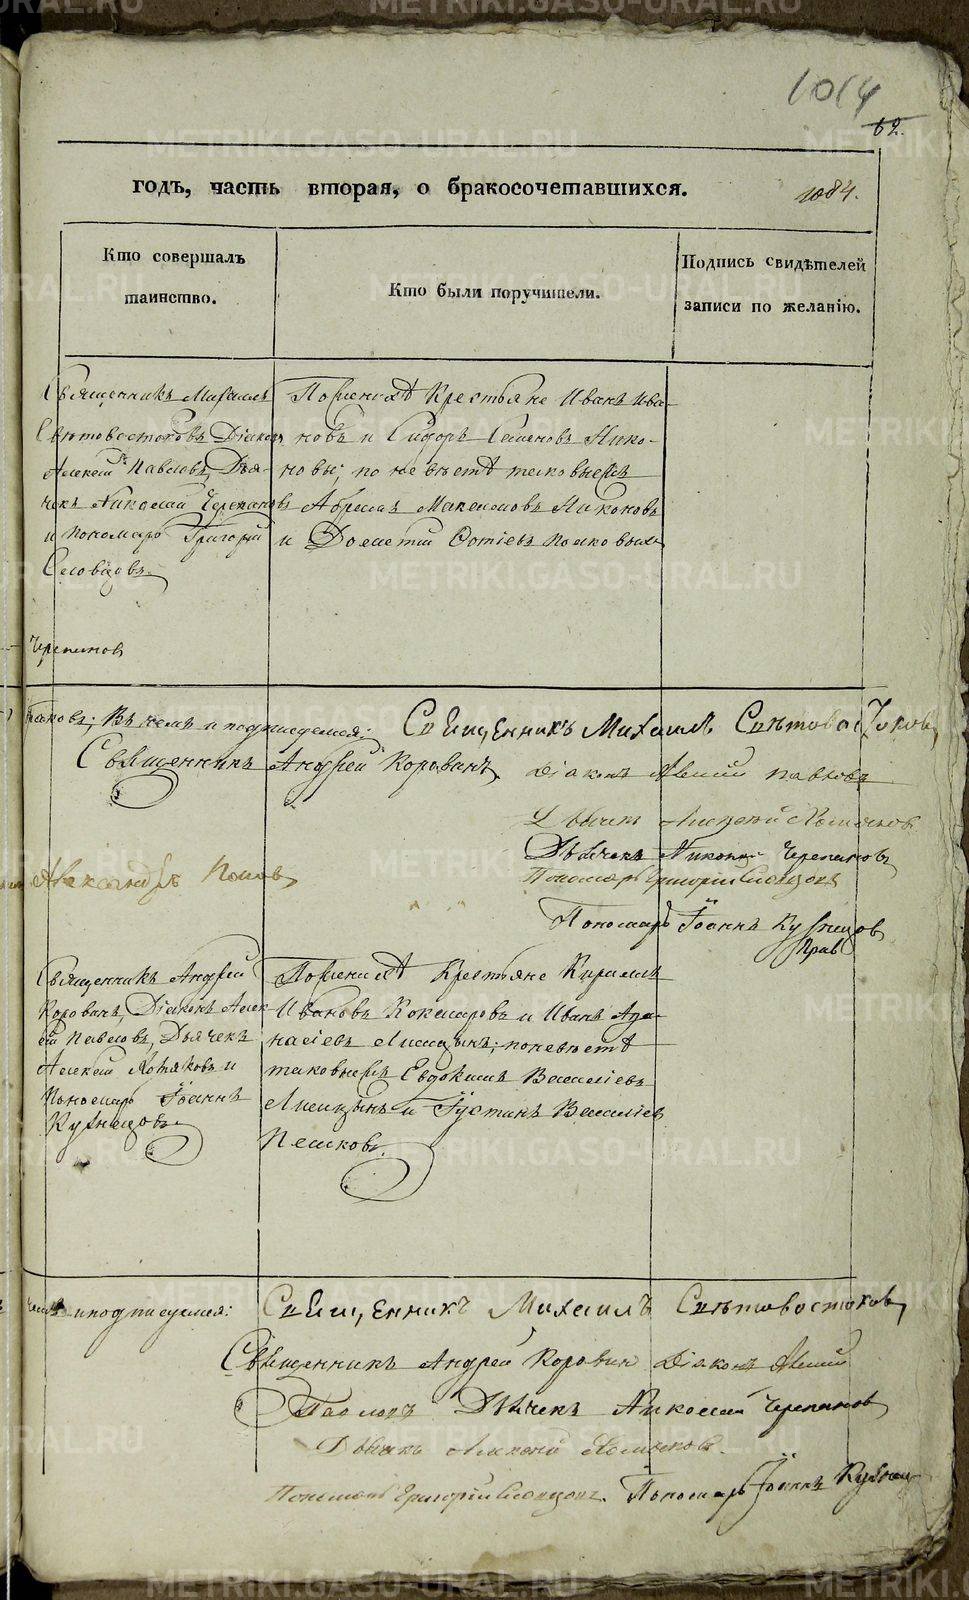 1014
62.
годъ, часть вторая, о бракосочетавшихся. 1084.
Кто совершалъ
таинство.
Кто были поручители.
Подпись свидѣтелей
записи по желанію.
Священникъ Михаилъ
Свѣтовостоковъ Діаконъ
Алексей Павловъ, Дья-
чекъ Николай Черепановъ
и Пономарь Григорій
Словцовъ.
По женихѣ Крестьяне Иванъ Ива-
новъ и Сидоръ Семеновъ Нико-
новы; по невѣстѣ таковыежъ
Абрамъ Максимовъ Никоновъ
и Дометій Фотіевъ
Черепановъ
Въ чемъ и подписуемся: Священникъ Михаилъ Свѣтовостоковъ,
Священникъ Андрей Корованъ
Діаконъ Павловъ
Дьячекъ Николай Черепановъ
Александръ Поповъ
Пономарь Григорій Словцовъ
Пономарь Іоаннъ Кузнецовъ
Священникъ Андрей
Корованъ, Діаконъ Алек-
ѣй Павловъ, Дьячекъ
Алексей и
Пономарь Іоаннъ
Кузнецовъ
По женихѣ Крестьяне Кирилъ
Ивановъ Кокшаровъ и Иванъ Афа-
насіевъ Лисицынъ; по невѣстѣ
таковыежъ Евдокимъ Василіевъ
Лисицынъ и Іустинъ Василіев
Пешковъ.
и подписуемся: Священникъ Михаилъ Свѣтовостоковъ,
Священникъ Андрей Корованъ Діаконъ
Павловъ Дьячекъ Николай Черепановъ
Дьячекъ Алексей
Пономарь Григорій Словцовъ. Пономарь Іоаннъ Кузнец
METRIKI.GASO-URAL.RU